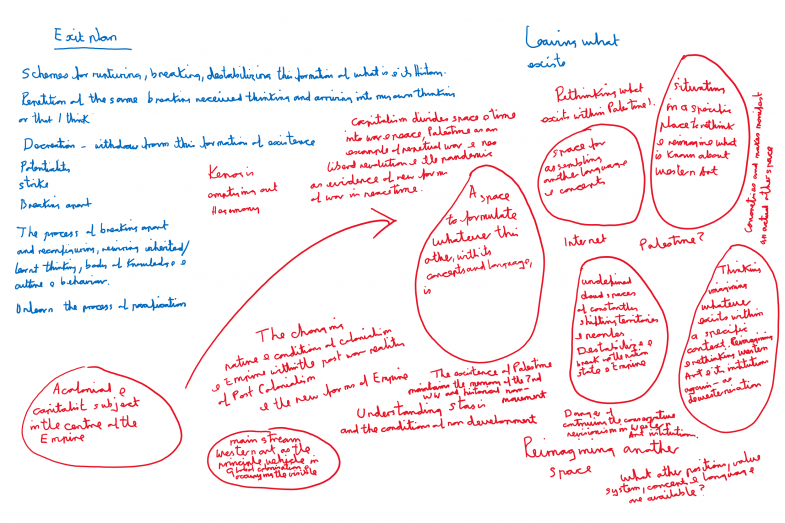 Exit plan
Schemes for nurturing, breaking, destabilizing this formation of what is & its History.
Repetition of the same breaking received thinking and arriving into my own thinking
or that I think
Decreation - withdraw from this formation of existence
Potentiality
strike
Breaking apart
The process of breaking apart
and reconfiguring, revising inherited/
learnt thinking, body of knowledge &
culture & behavior.
Unlearn the process of
Kenosis
emptying out
Hegemony
capitalism divides space & time
into war & peace, Palestine as an
example of perpetual war & neo
liberal revolution & the pandemic
as evidence of new form
of war in peacetime.
A colonial &
capitalist subject
in the centre of the
Empire
A space
to formulate
whatever this
other, with its
concepts and language,
is
The changing
nature & conditions of colonialism
& Empire within the post war realities
of Post Colonialism
& the new forms of Empire
main stream
Western art as the
principle vehicle in
Global colonialism &
occupying the visible
The existence of Palestine
maintains the memory of the 2nd
WW and historical non-
movement
Understanding stasis
and the conditions of non development
Leaving what
exists
Rethinking what
exists within Palestine?.
space for
assembling
another language
& concepts
situation
in a specific
place to rethink
& reimagine what
is known about
Western Art
Concretises and makes manifest
an actual other space
Internet
Palestine?
undefined
cloud spaces
of constantly
shifting territories
& peoples
Destabilize &
break up the nation
state & Empire
Thinking
imagining
whatever
exists within
a specific
context. Reimagining
& rethinking Western
Art & its institutions
again - as
dewesternisation
Danger of
continuing the conservative
revisionism in Western
Art institutions.
Reimagining another
space
what other positions, value
system, concepts & language
are available?